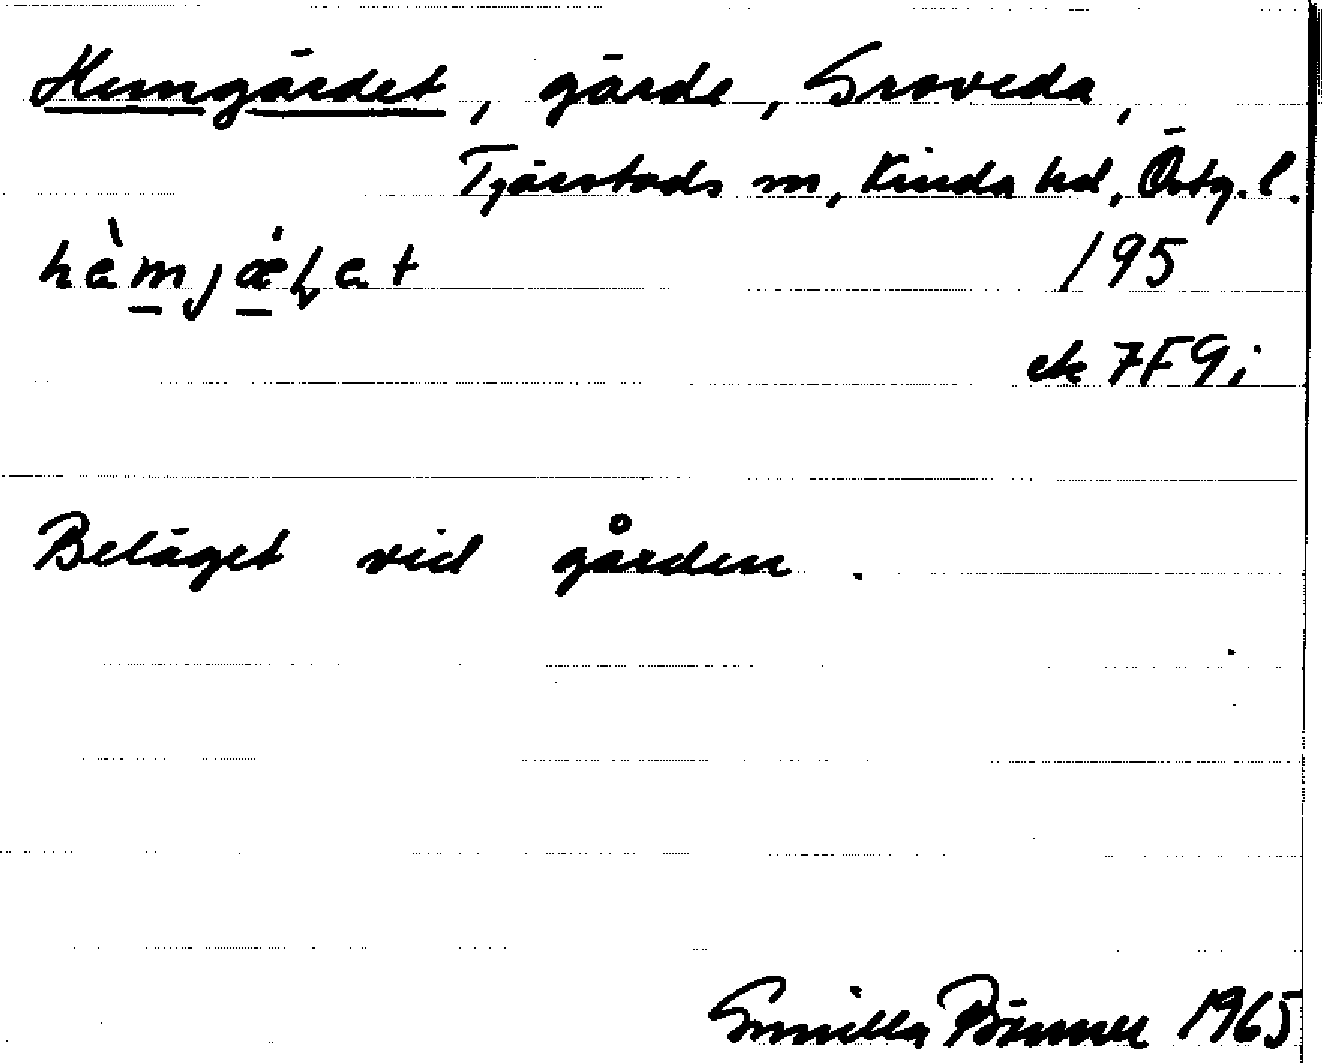 Hemgärdet, gärde, Groveda,
Tjärstads sn, Kinda hd, Östg. l.
195
ek 7F9i
Beläget vid gården.
Gunilla 1965